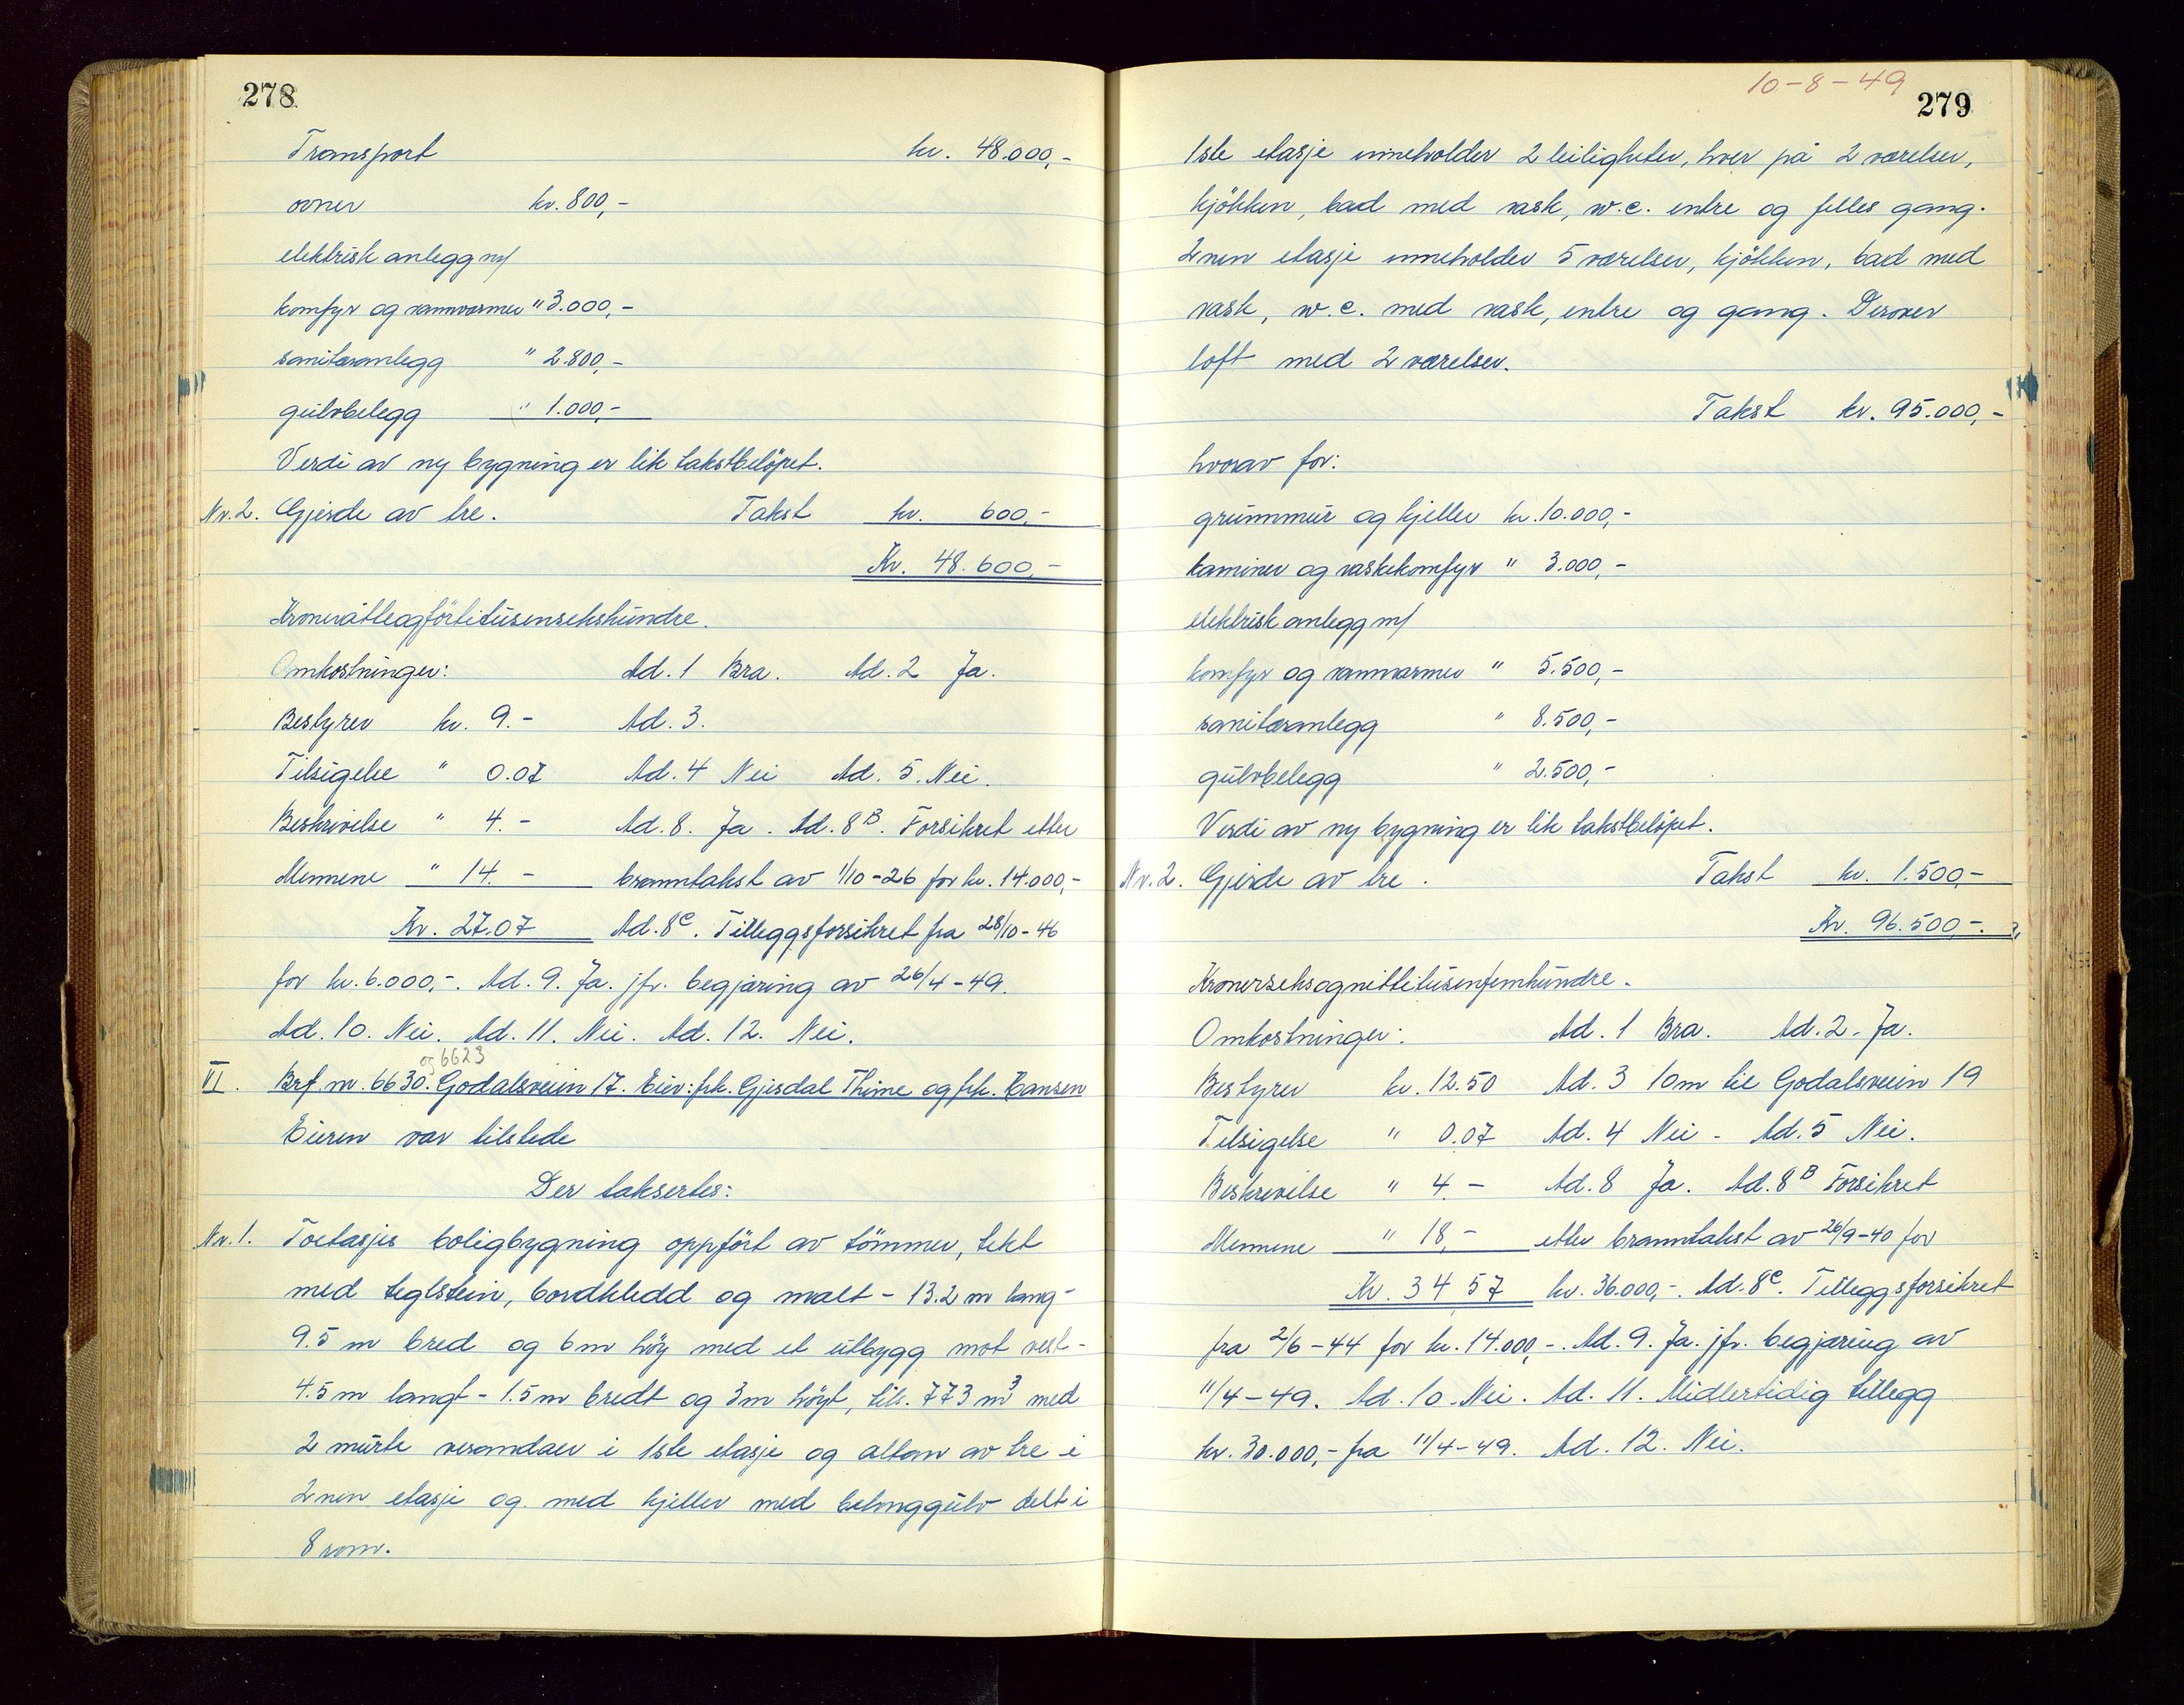 278
Transport kr. 48.000,-
ovner kr. 800,-
elektrisk anlegg m/
komfyr og vannvarmer " 3.000,-
sanitæranlegg " 2.800,-
gulvbelegg " 1.000,-
Verdi av ny bygning er lik takstbeløpet.
Nr. 2. Gjerde av tre. Takst kr. 600,-
Kr. 48.600,-
Kroneråtteogførtitusensekshundre.
Omkostninger: Ad. 1 Bra. Ad. 2 Ja.
Bestyrer kr. 9.- Ad. 3.
Tilsigelse " 0.07 Ad. 4 Nei Ad. 5. Nei.
Beskrivelse " 4.- Ad. 8. Ja. Ad. 8B. Forsikret etter
Mennene " 14.- branntakst av 1/10-26 for kr. 14.000,-
Kr. 27.07 Ad. 8C. Tilleggsforsikret fra 28/10-46
for kr. 6.000,-. Ad. 9. Ja. jfr. begjæring av 26/4-49.
Ad. 10. Nei. Ad. 11. Nei. Ad. 12. Nei.
og 6623
VI. Brf. nr. 6630. Godalsveien 17. Eier: frk. Gjesdal Thime og frk. Hansen
Eieren var tilstede
Der taksertes:
Nr. 1. Toetasjes boligbygning oppført av tömmer, tekt
med teglstein, bordkledd og malt - 13.2 m lang -
9.5 m bred og 6 m höy med et utbygg mot vest -
4.5 m langt - 1.5 m bredt og 3 m höyt, tils. 773 m3 med
2 murte verandaer i 1ste etasje og altan av tre i
2nen etasje og med kjeller med betonggulv delt i
8 rom.
10-8-49
279
1ste etasje inneholder 2 leiligheter, hver på 2 værelser,
kjökken, bad med vask, w.c. entre og felles gang.
2nen etasje inneholder 5 værelser, kjökken, bad med
vask, w.c. med vask, entre og gang. Derover
loft med 2 værelser.
Takst kr. 95.000,-
hvorav for:
grunnmur og kjeller kr. 10.000,-
kaminer og vaskekomfyr " 3.000,-
elektrisk anlegg m/
komfyr og vannvarmer " 5.500,-
sanitæranlegg " 8.500,-
gulvbelegg " 2.500,-
Verdi av ny bygning er lik takstbeløpet.
Nr. 2. Gjerde av tre. Takst kr. 1.500,-
Kr. 96.500,-.
Kronerseksognittitusenfemhundre.
Omkostninger: Ad. 1 Bra. Ad. 2. Ja.
Bestyrer kr. 12.50 Ad. 3 10m til Godalsveien 19
Tilsigelse " 0.07 Ad. 4 Nei - Ad. 5 Nei.
Beskrivelse " 4.- Ad. 8 Ja. Ad. 8B Forsikret
Mennene " 18,- etter branntakst av 26/9-40 for
Kr. 34 57 kr. 36.000,-. Ad. 8C. Tilleggsforsikret
fra 2/6-44 for kr. 14.000,-. Ad. 9. Ja. jfr. begjæring av
11/4-49. Ad. 10. Nei. Ad. 11. Midlertidig tillegg
kr. 30.000,- fra 11/4-49. Ad. 12. Nei.